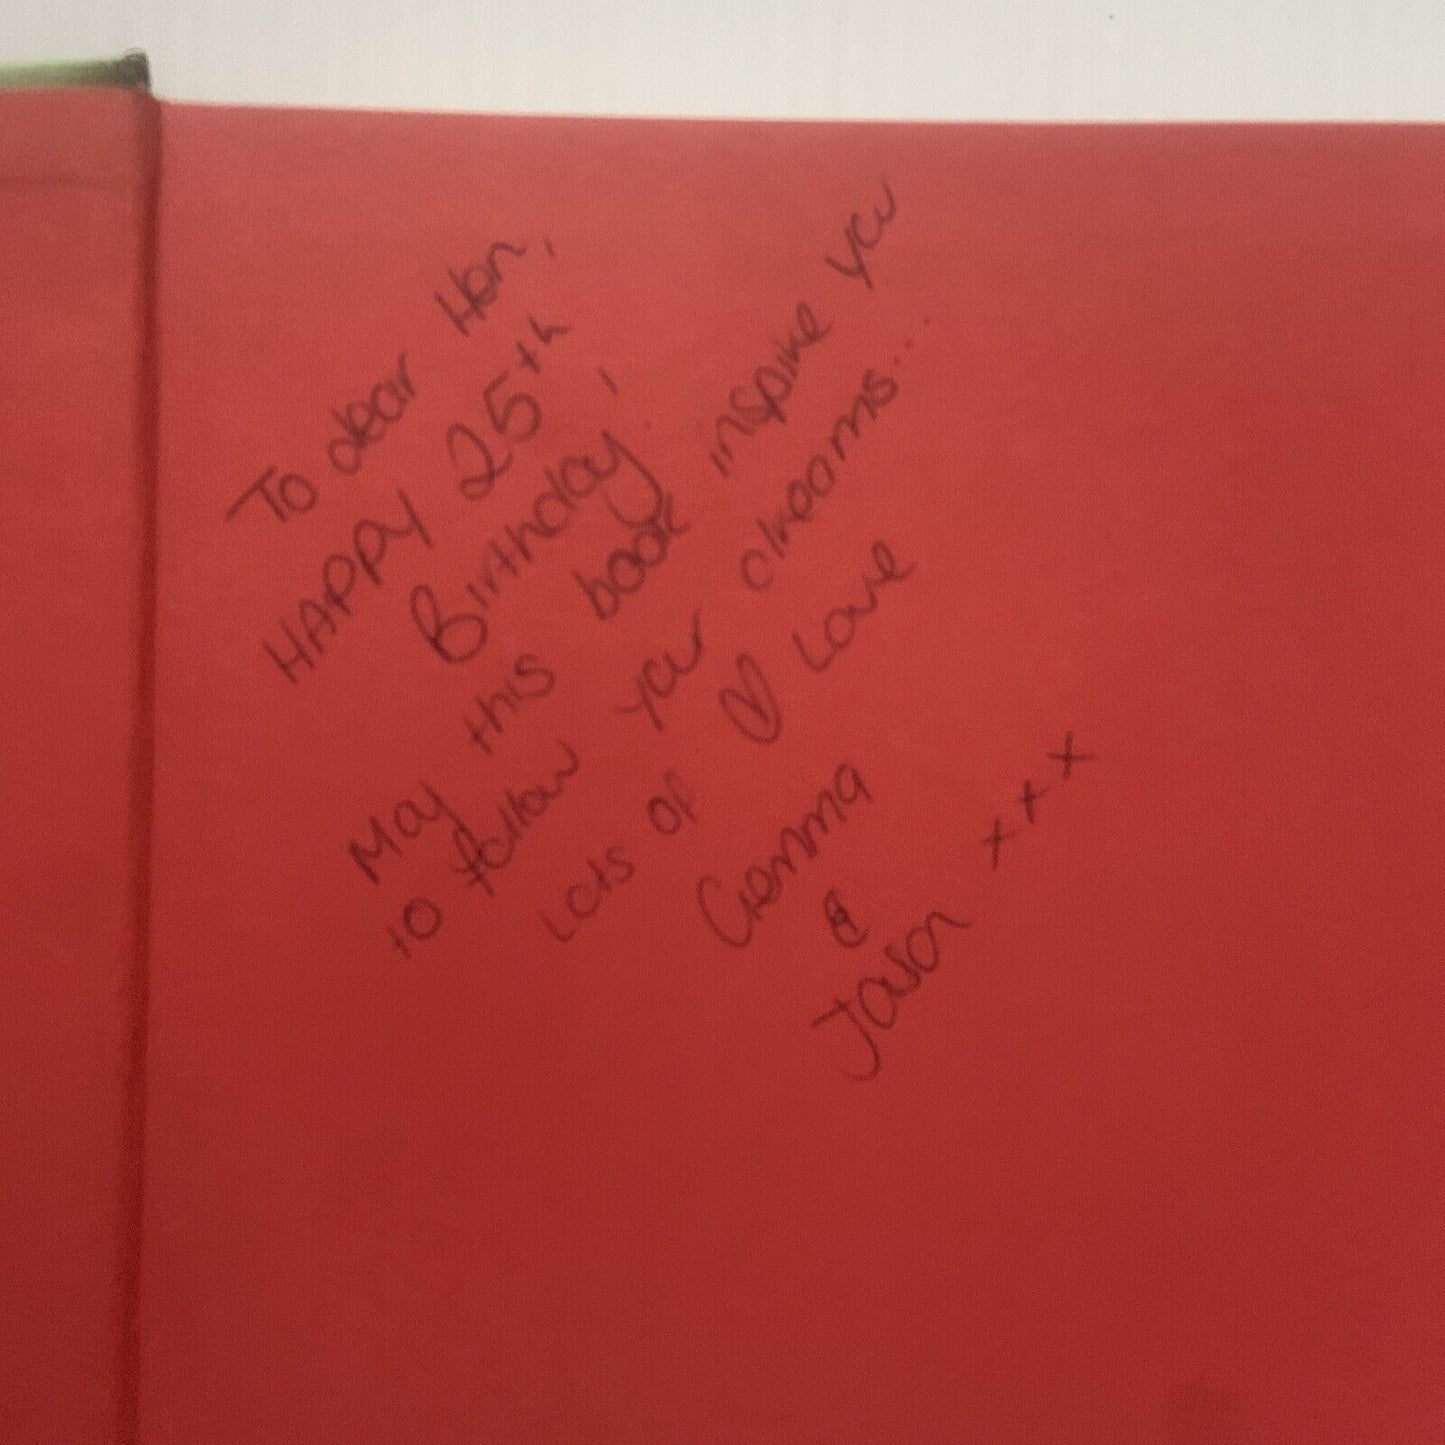 To dear Hon,
HAPPY 25th
Birthday!
May this book inspire you
to follow your dreams...
Lots of ♡ Love
Gemma
&
Jason xxx